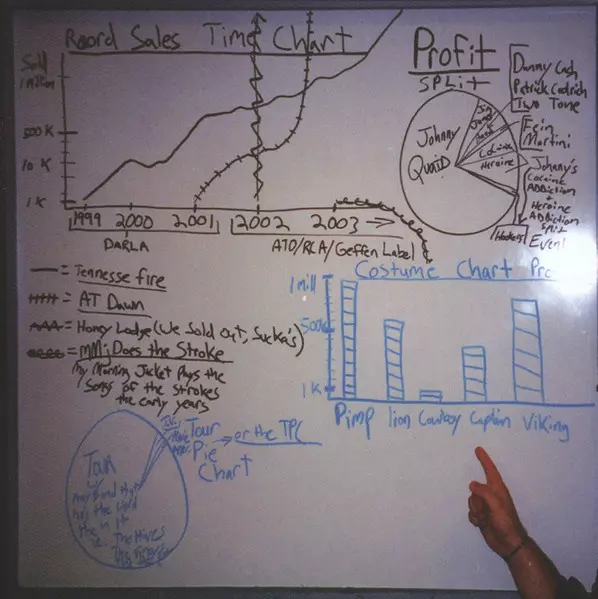 Record Sales Time Chart
Sold
1 million
500 K
10 K
1 K
1999 2000 2001 2002 2003
DARLA
ATO/RCA/Geffen Label
Profit
SPLit
Johnny
Quaid
Jim
James
Cocaine
Heroine
Danny Cash
Patrick
Two Tone
Fein
Martini
Johnny's
Cocaine
ADDiction
+
Heroine
ADDiction
Split
Even!
Hookers
= Tennesse fire
= AT Dawn
= Honey Lodge (We Sold Out, Sucka's)
= MMJ Does the Stroke
My Morning Jacket Plays the
Song of the Strokes
the early years
Costume Chart Pro
1 mill
500K
1 K
Pimp lion Cowboy Captain Viking
Tour
Pie
Chart
or the TPC
Tour
w/
any Band that
has the word
the in it
The Hives